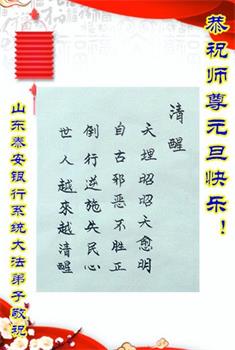 恭祝师尊元旦快乐！
清醒
天理昭昭天愈明
自古邪恶不胜正
倒行逆施失民心
世人越來越清醒
山东泰安银行系统大法弟子敬祝